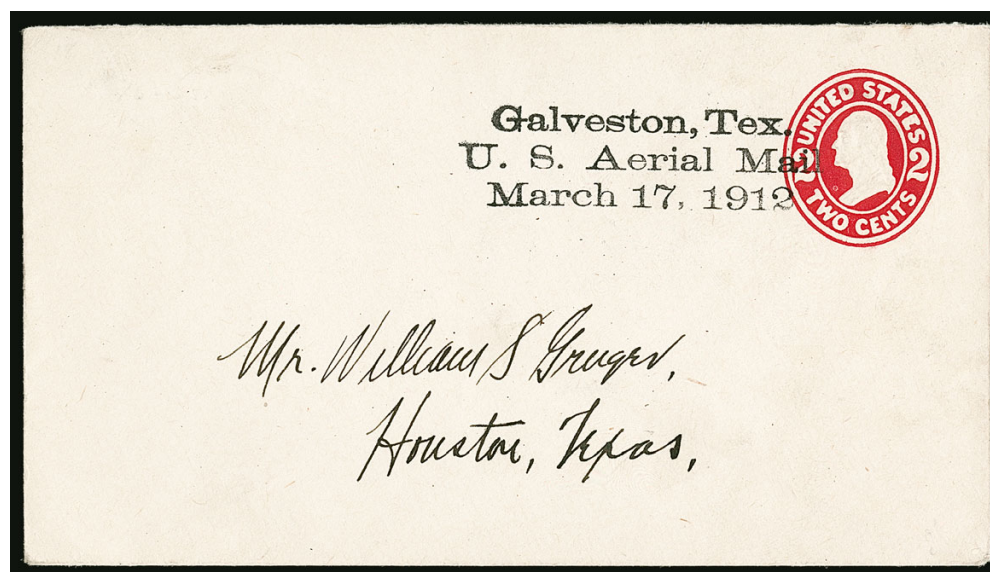 Galveston, Tex.
U. S. Aerial Mail
March 17, 1912
UNITED STATES
2 2
TWO CENTS
Mr. William S
Houston, Texas,